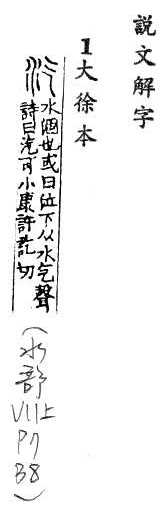 説文解字
1大徐本
汽 水涸也或曰泣下从水气聲
詩曰汽可小康許訖切
(水部
VII上
P7
B8)